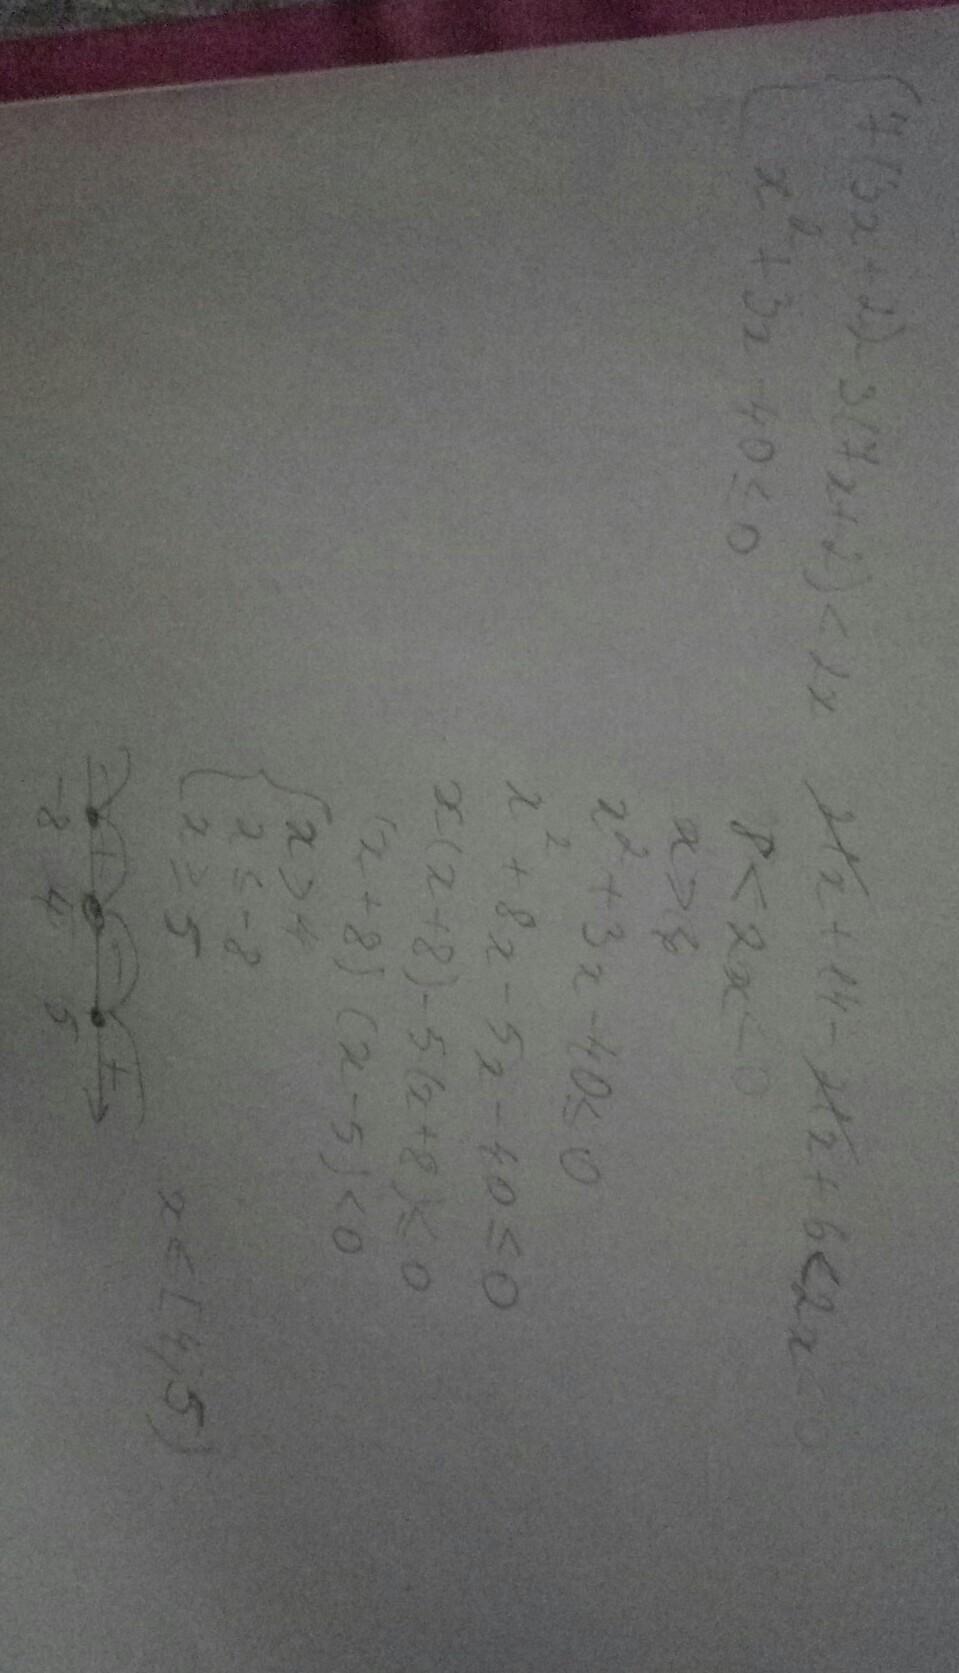 7(3x+2)-3(7x+2)<2x
x²+3x-40≤0
21x+14-21x+6<2x<0
8<2x<0
x>8
x²+3x-40≤0
x²+8x-5x-40≤0
x(x+8)-5(x+8)≤0
(x+8)(x-5)<0
x>4
x≤-8
x≥5
- + - +
-8 4 5
x∈[4,5)